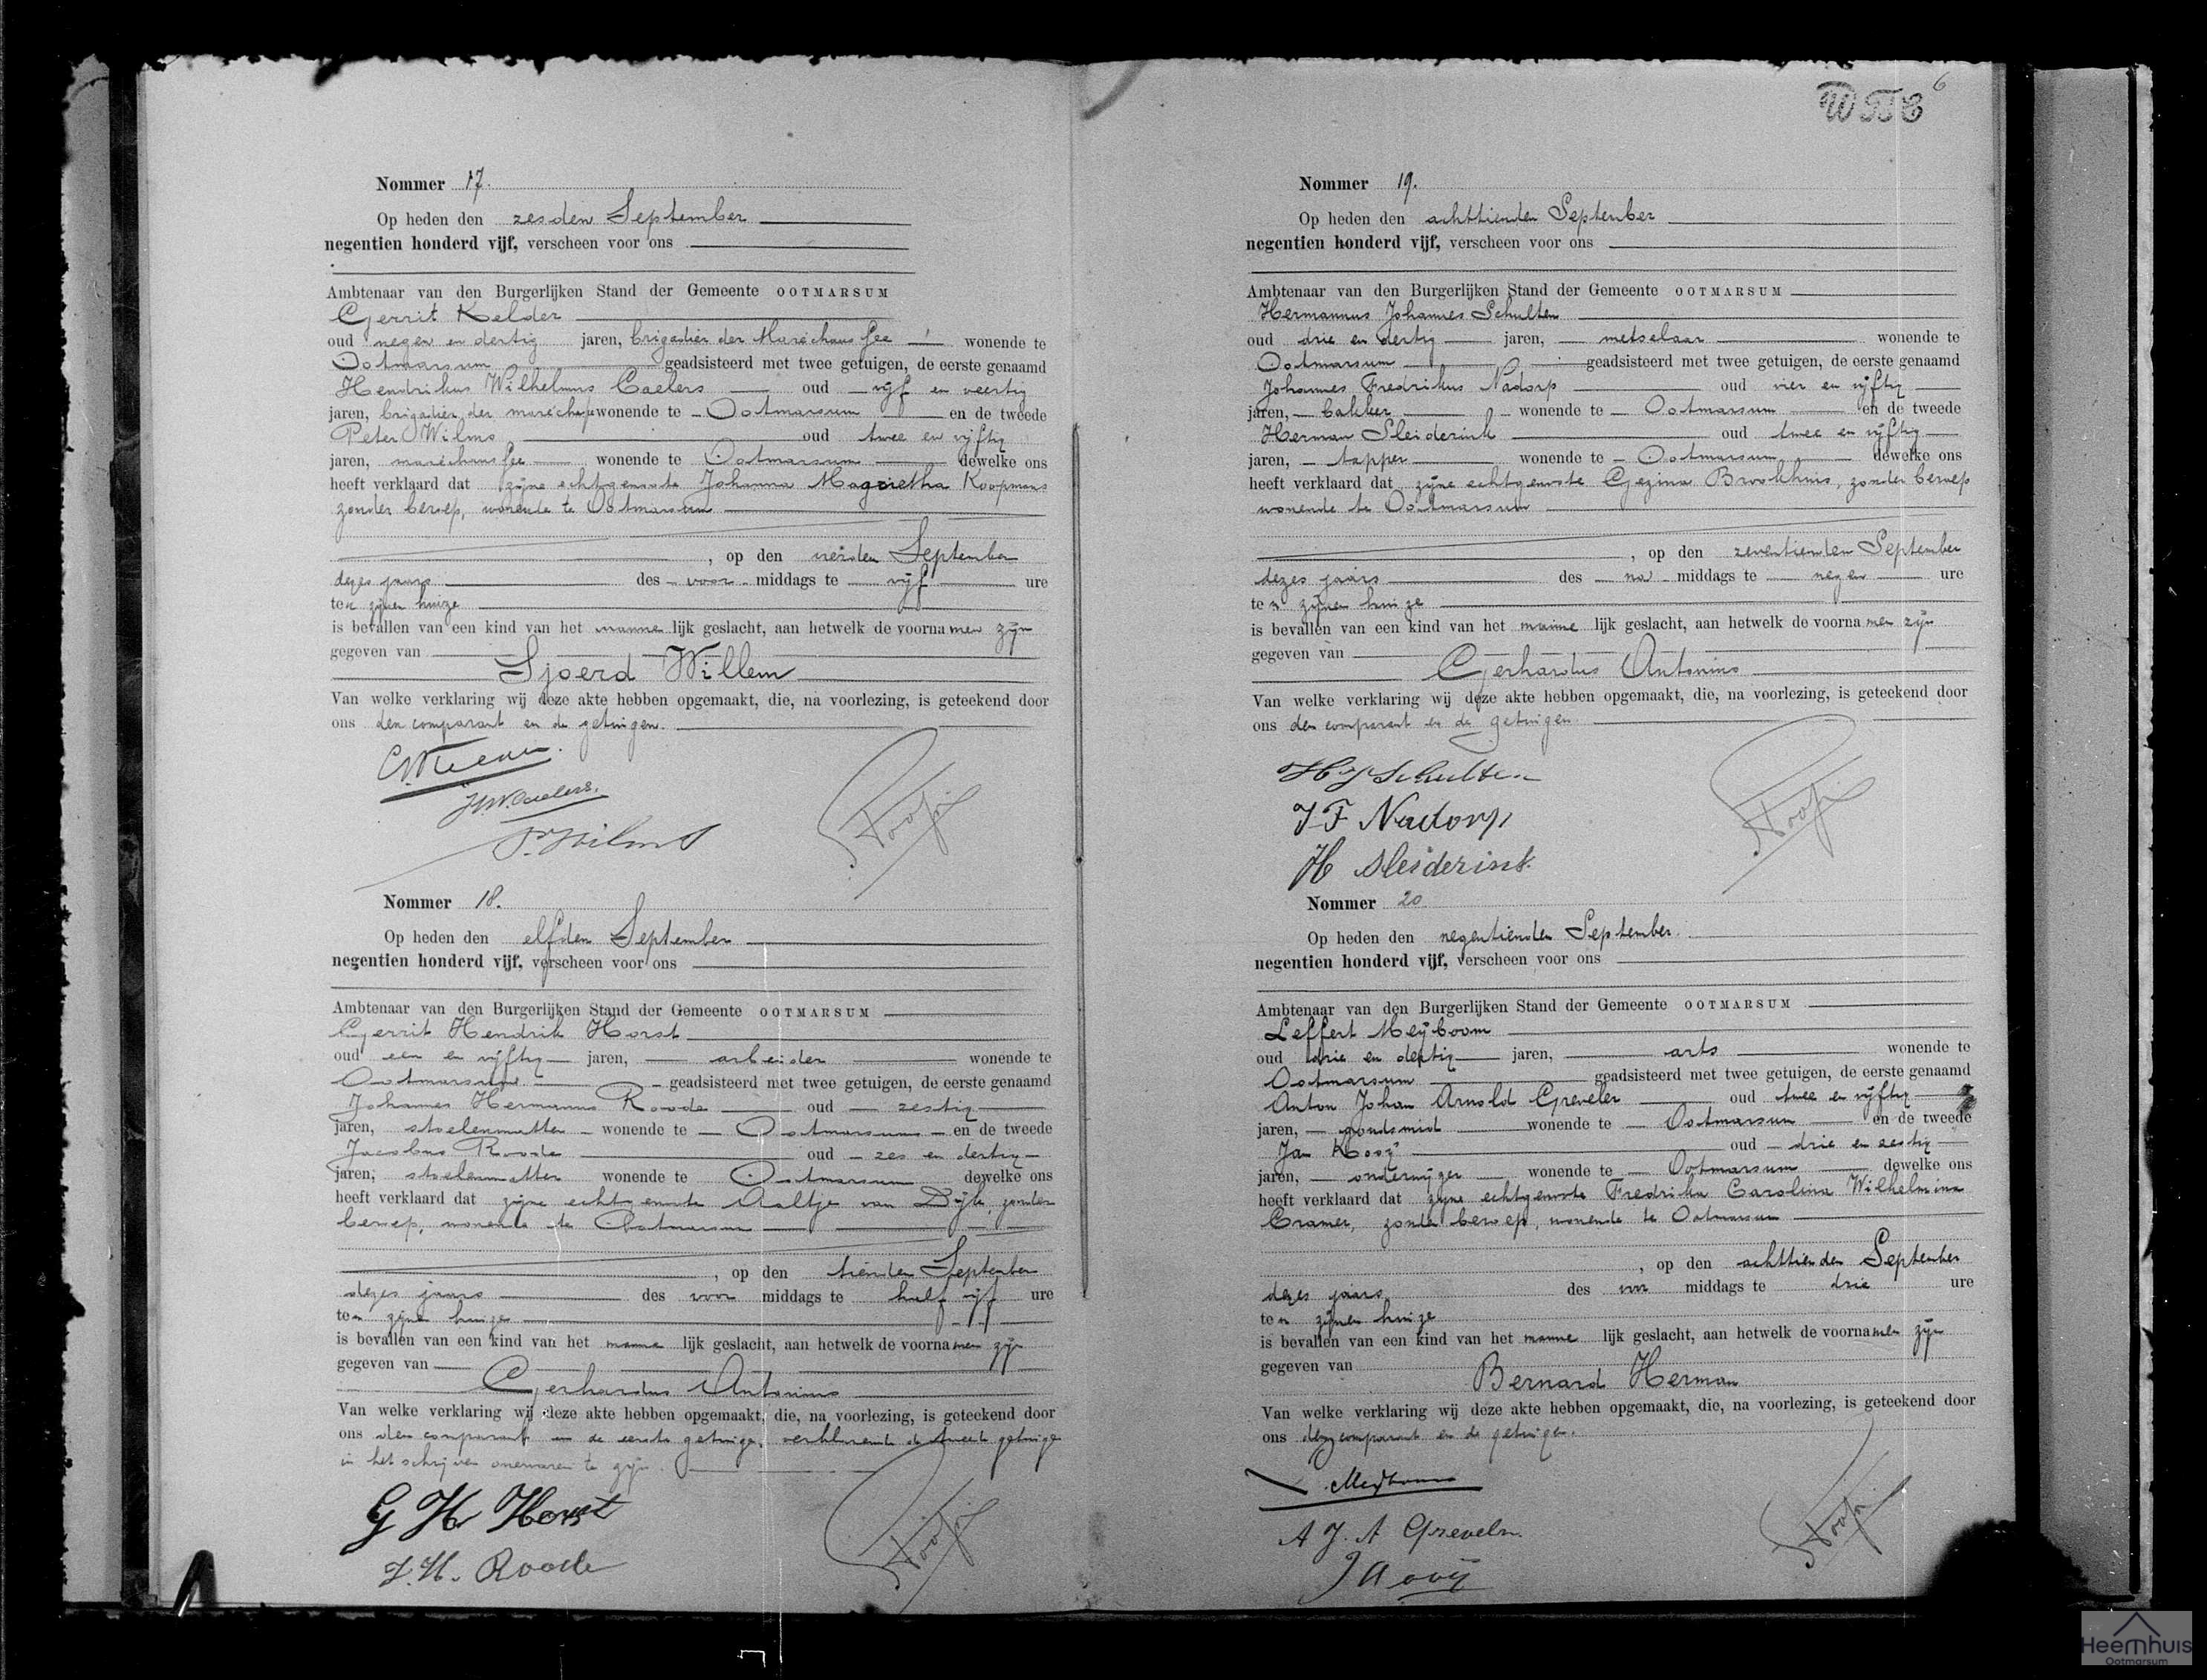 6
Nommer 17.
Op heden den zesden September
negentien honderd vijf, verscheen voor ons
Ambtenaar van den Burgerlijken Stand der Gemeente OOTMARSUM
Gerrit Kelder
oud negen en dertig jaren, brigadier der Maréchaussee wonende te
Ootmarsum geadsisteerd met twee getuigen, de eerste genaamd
Hendrikus Wilhelmus Caelers oud vijf en veertig
jaren, brigadier der wonende te Ootmarsum en de tweede
Peter Wilms oud twee en vijftig
jaren, maréchaussee wonende te Ootmarsum dewelke ons
heeft verklaard dat zijne echtgenoote Johanna Magrietha Koopmans
zonder beroep, wonende te Ootmarsum
, op den vierden September
dezes jaars des voor middags te vijf ure
ten zijnen huize
is bevallen van een kind van het manne lijk geslacht, aan hetwelk de voornamen zijn
gegeven van
Sjoerd Willem
Van welke verklaring wij deze akte hebben opgemaakt, die, na voorlezing, is geteekend door
ons den comparant en de getuigen.
HWCaelers.
P. Wilms
Nommer 18.
Op heden den elfden September
negentien honderd vijf, verscheen voor ons
Ambtenaar van den Burgerlijken Stand der Gemeente OOTMARSUM
Gerrit Hendrik Horst
oud een en vijftig jaren, arbeider wonende te
Ootmarsum geadsisteerd met twee getuigen, de eerste genaamd
Johannes Hermannus Roode oud zestig
jaren, stoelenmatter wonende te Ootmarsum en de tweede
Jacobus Roode oud zes en dertig
jaren, stoelenmatter wonende te Ootmarsum dewelke ons
heeft verklaard dat zijne echtgenoote Aaltje van Dijk, zonder
beroep, wonende te Ootmarsum
, op den tienden September
dezes jaars des voor middags te half vijf ure
ten zijne huize
is bevallen van een kind van het manne lijk geslacht, aan hetwelk de voornamen zijn
gegeven van
Gerhardus Antonius
Van welke verklaring wij deze akte hebben opgemaakt, die, na voorlezing, is geteekend door
ons den comparant en de eerste getuige, verklarende de tweede getuige
in het schrijven onervaren te zijn.
G H Horst
J. H. Roode
Nommer 19.
Op heden den achttienden September
negentien honderd vijf, verscheen voor ons
Ambtenaar van den Burgerlijken Stand der Gemeente OOTMARSUM
Hermannus Johannes Schulten
oud drie en dertig jaren, metselaar wonende te
Ootmarsum geadsisteerd met twee getuigen, de eerste genaamd
Johannes Fredrikus Nadorp oud vier en vijftig
jaren, bakker wonende te Ootmarsum en de tweede
Herman Sleiderink oud twee en vijftig
jaren, tapper wonende te Ootmarsum dewelke ons
heeft verklaard dat zijne echtgenoote Gezina Brookhuis, zonder beroep
wonende te Ootmarsum
, op den zeventienden September
dezes jaars des na middags te negen ure
ten zijnen huize
is bevallen van een kind van het manne lijk geslacht, aan hetwelk de voornamen zijn
gegeven van
Gerhardus Antonius
Van welke verklaring wij deze akte hebben opgemaakt, die, na voorlezing, is geteekend door
ons den comparant en de getuigen
H J Schulten
J F Nadorp
H Sleiderink.
Nommer 20
Op heden den negentienden September
negentien honderd vijf, verscheen voor ons
Ambtenaar van den Burgerlijken Stand der Gemeente OOTMARSUM
Leffert Meyboom
oud drie en dertig jaren, arts wonende te
Ootmarsum geadsisteerd met twee getuigen, de eerste genaamd
Anton Johan Arnold Greveler oud twee en vijftig
jaren, goudsmid wonende te Ootmarsum en de tweede
Jan Kooij oud drie en zestig
jaren, onderwijzer wonende te Ootmarsum dewelke ons
heeft verklaard dat zijne echtgenoote Fredrika Carolina Wilhelmina
Cramer, zonder beroep, wonende te Ootmarsum
, op den achttienden September
dezes jaars des voor middags te drie ure
ten zijnen huize
is bevallen van een kind van het manne lijk geslacht, aan hetwelk de voornamen zijn
gegeven van
Bernard Herman
Van welke verklaring wij deze akte hebben opgemaakt, die, na voorlezing, is geteekend door
ons den comparant en de getuigen.
Meyboom
A. J. A Greveler
J Kooij
Heemhuis
Ootmarsum